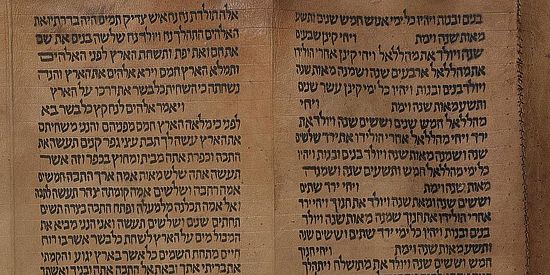 בנים ובנות ויהיו כל ימי אנוש חמש שנים ותשע
מאות שנה וימת ויחי קינן שבעים
שנה ויולד את מהללאל ויחי קינן אחרי הולידו
את מהללאל ארבעים שנה ושמנה מאות שנה
ויולד בנים ובנות ויהיו כל ימי קינן עשר שנים
ותשע מאות שנה וימת ויחי
מהללאל חמש שנים וששים שנה ויולד את
ירד ויחי מהללאל אחרי הולידו את ירד שלשים
שנה ושמנה מאות שנה ויולד בנים ובנות ויהיו
כל ימי מהללאל חמש ותשעים שנה ושמנה מאות
שנה וימת ויחי ירד שתים
וששים שנה ומאת שנה ויולד את חנוך ויחי ירד
אחרי הולידו את חנוך שמנה מאות שנה ויולד
בנים ובנות ויהיו כל ימי ירד שתים וששים שנה
ותשע מאות שנה וימת ויחי חנוך
חמש וששים שנה ויולד את מתושלח ויתהלך
אלה תולדת נח נח איש צדיק תמים היה בדרתיו את
האלהים התהלך נח ויולד נח שלשה בנים את שם
את חם ואת יפת ותשחת הארץ לפני האלהים
ותמלא הארץ חמס וירא אלהים את הארץ והנה
נשחתה כי השחית כל בשר את דרכו על הארץ
ויאמר אלהים לנח קץ כל בשר בא
לפני כי מלאה הארץ חמס מפניהם והנני משחיתם
את הארץ עשה לך תבת עצי גפר קנים תעשה את
התבה וכפרת אתה מבית ומחוץ בכפר וזה אשר
תעשה אתה שלש מאות אמה ארך התבה חמשים
אמה רחבה ושלשים אמה קומתה צהר תעשה לתבה
ואל אמה תכלנה מלמעלה ופתח התבה בצדה תשים
תחתים שנים ושלשים תעשה ואני הנני מביא את
המבול מים על הארץ לשחת כל בשר אשר בו רוח
חיים מתחת השמים כל אשר בארץ יגוע והקמתי
את בריתי אתך ובאת אל התבה אתה ובניך ואשתך